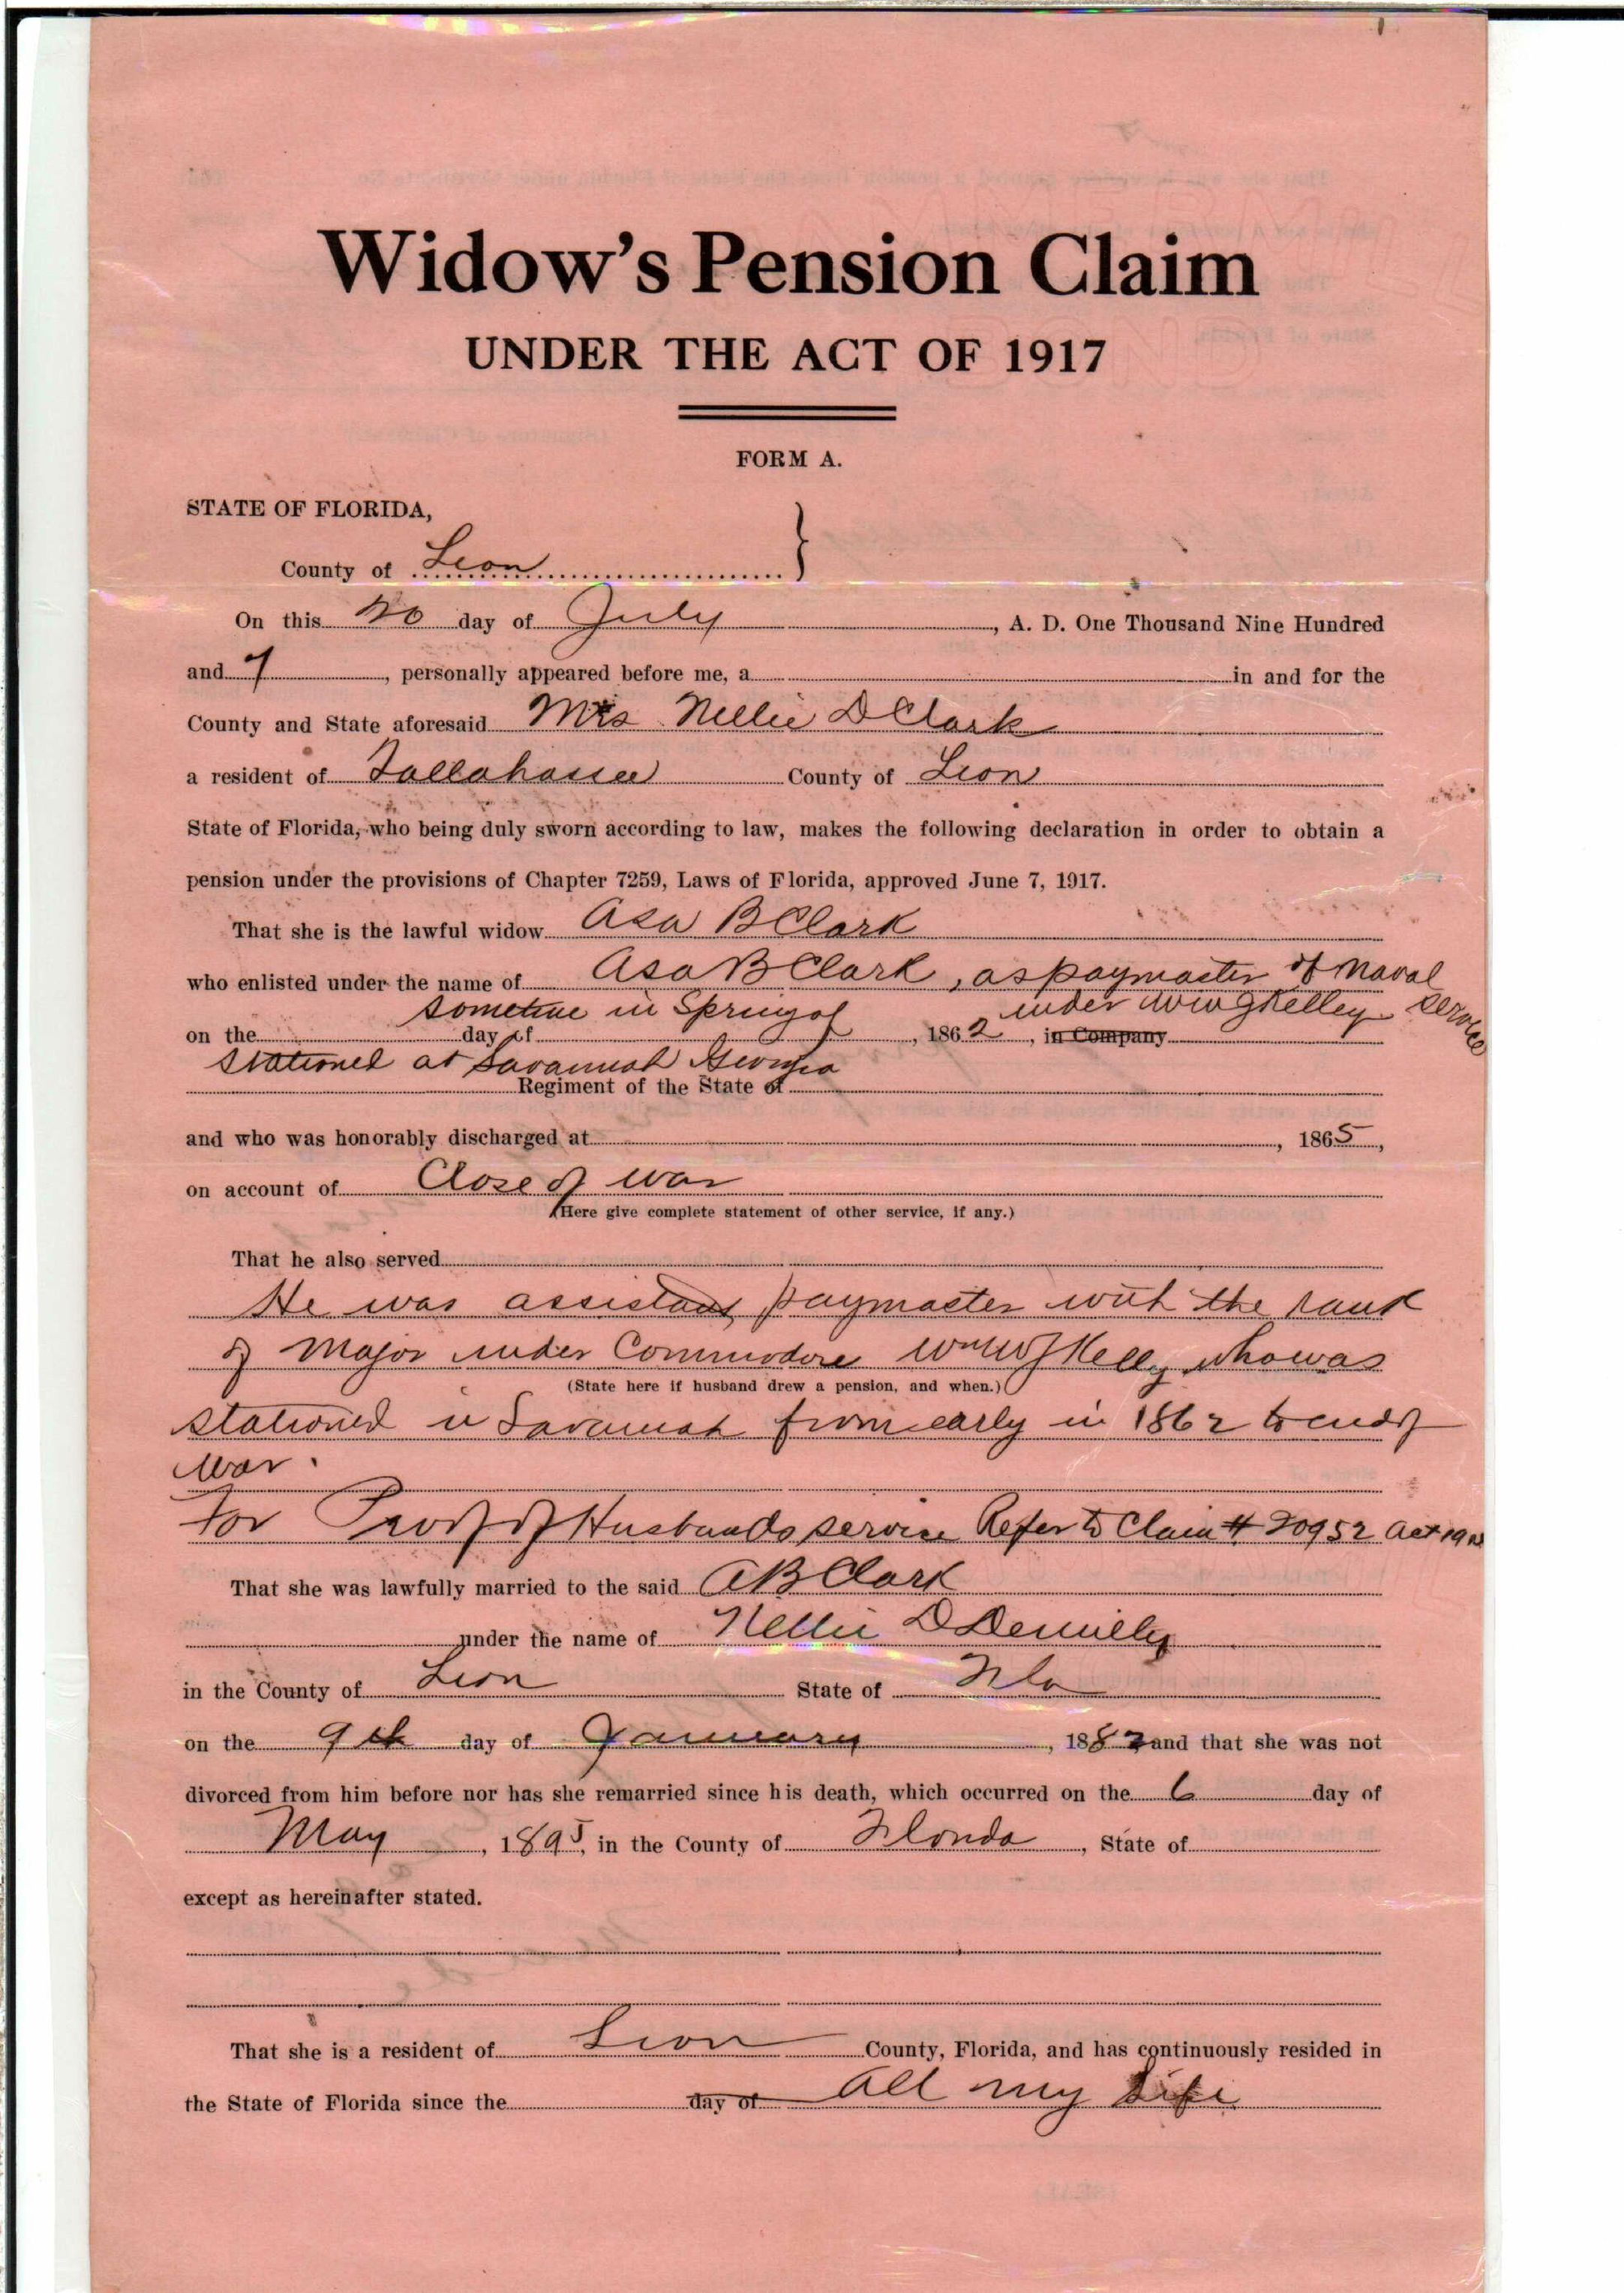 Widow's Pension Claim
UNDER THE ACT OF 1917
FORM A.
STATE OF FLORIDA,
County of Leon
On this 20 day of July, A. D. One Thousand Nine Hundred
and 7, personally appeared before me, a in and for the
County and State aforesaid Mrs Nellie D Clark
a resident of Tallahassee County of Leon
State of Florida, who being duly sworn according to law, makes the following declaration in order to obtain a
pension under the provisions of Chapter 7259, Laws of Florida, approved June 7, 1917.
That she is the lawful widow Asa B Clark
who enlisted under the name of Asa B Clark, as paymaster of Naval service
sometime in Spring of under Kelley
on the day of, 1862, in Company
stationed at Savannah Georgia
Regiment of the State of
and who was honorably discharged at, 1865,
on account of Close of war
(Here give complete statement of other service, if any.)
That he also served
He was assistant paymaster with the rank
of Major under Commodore Kelly who was
(State here if husband drew a pension, and when.)
stationed in Savannah from early in 1862 to end of
war.
For Proof of Husbands service Refer to Claim # 20952 Act
That she was lawfully married to the said A B Clark
under the name of Nellie D
in the County of Leon State of Fla
on the 9th day of January, 1882 and that she was not
divorced from him before nor has she remarried since his death, which occurred on the 6 day of
May, 1895, in the County of Florida, State of
except as hereinafter stated.
That she is a resident of Leon County, Florida, and has continuously resided in
the State of Florida since the day of All my Life